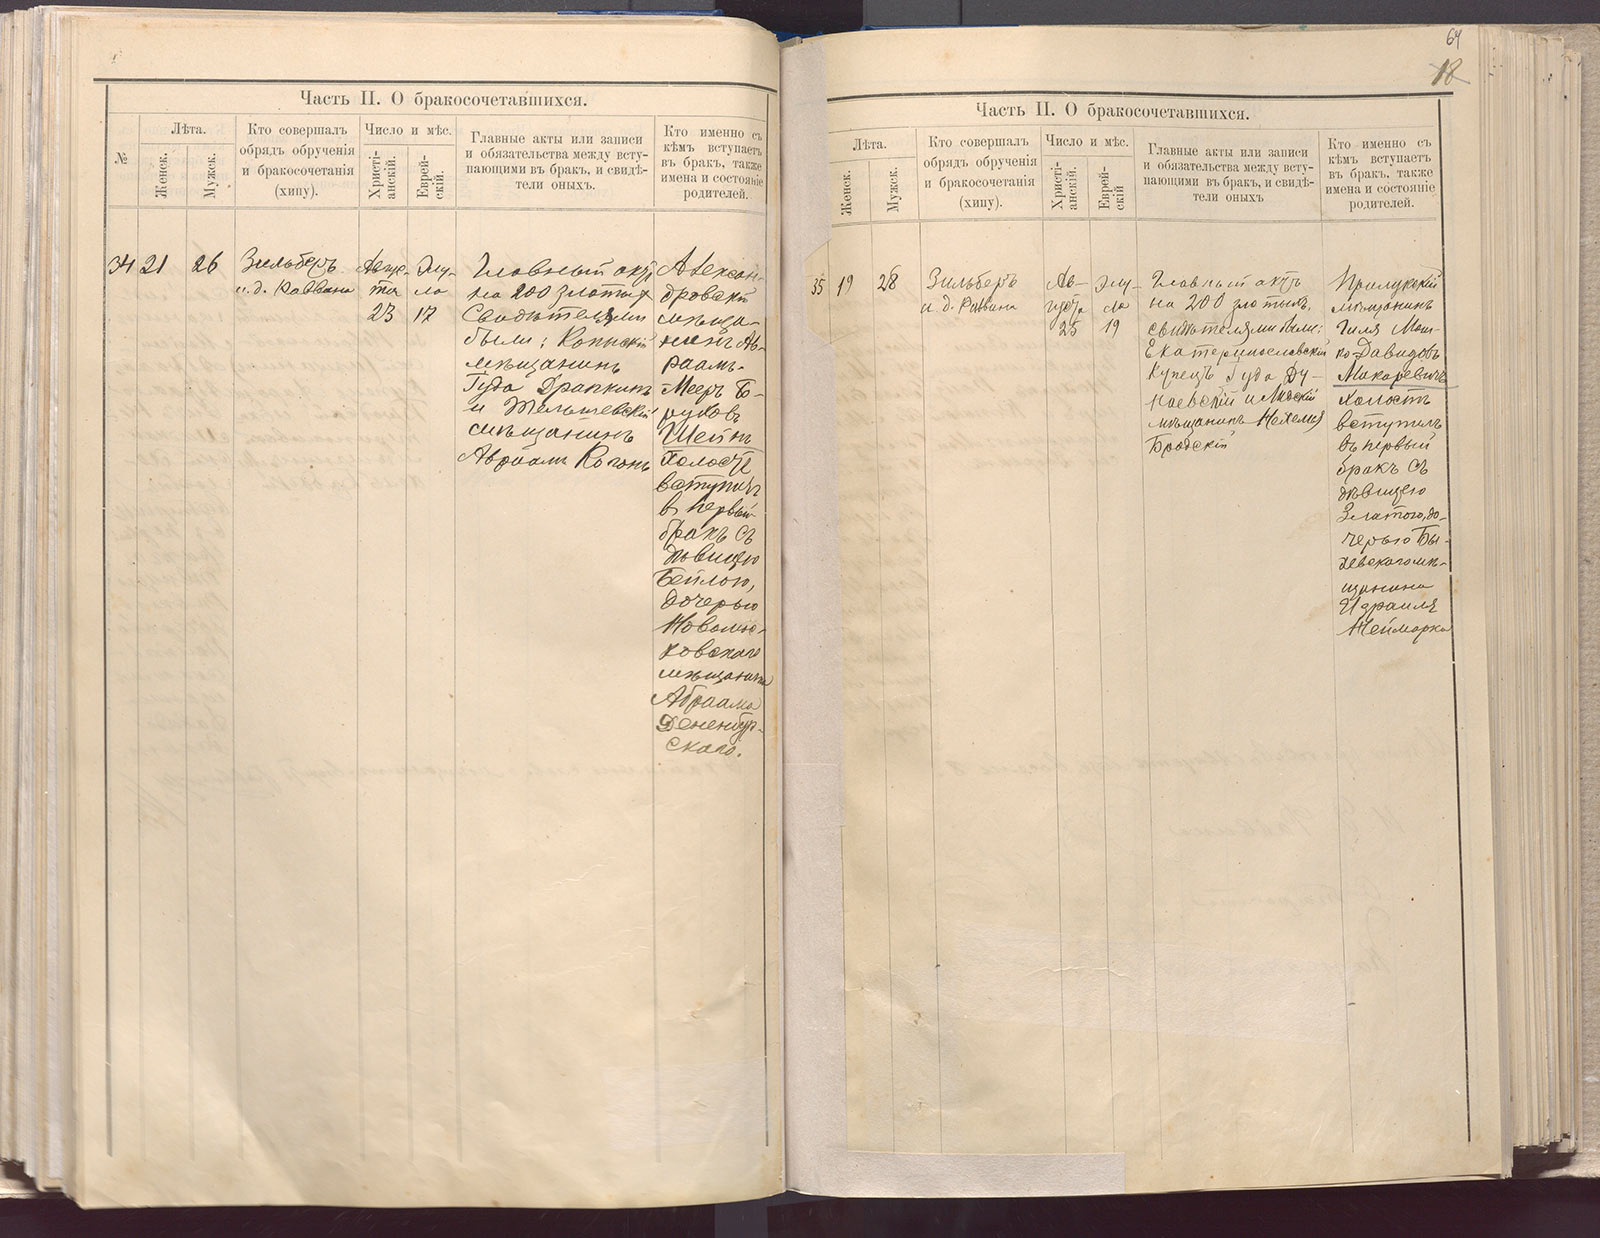 Часть II. О бракосочетавшихся.
№
Лѣта.
Женск.
Мужск.
Кто совершалъ
обрядъ обрученія
и бракосочетанія
(хипу).
Число и мѣс.
Христі-
анскій.
Еврей-
скій.
Главные акты или записи
и обязательства между всту-
пающими въ бракъ, и свидѣ-
тели оныхъ.
Кто именно съ
кѣмъ вступаетъ
въ бракъ, также
имена и состояніе
родителей.
34
21
26
Зильберъ
и. д. Раввина
Авгус-
та
23
Элу-
ла
17
Главный актъ
на 200 злотыхъ
Свидѣтелями
были: Копыскій
мѣщанинъ
Гуда Драпкинъ
и
мѣщанинъ
Авраамъ Коганъ
Александ-
дровскій
мѣща-
нинъ Ав-
раамъ-
Мееръ Бо-
руховъ
Шейнъ
холостъ
вступилъ
въ первый
бракъ съ
дѣвицею
Бейлою,
дочерью
Новомос-
ковскаго
мѣщанина
Абрама
Дененбур-
скаго.
64
18
Часть II. О бракосочетавшихся.
Лѣта.
Женск.
Мужск.
Кто совершалъ
обрядъ обрученія
и бракосочетанія
(хипу).
Число и мѣс.
Христі-
анскій.
Еврей-
скій
Главные акты или записи
и обязательства между всту-
пающими въ бракъ, и свидѣ-
тели оныхъ
Кто именно съ
кѣмъ вступаетъ
въ бракъ, также
имена и состояніе
родителей.
35
19
28
Зильберъ
и. д. Раввина
Ав-
густа
25
Элу-
ла
19
Главный актъ
на 200 злотыхъ,
свидѣтелями были:
Екатеринославскій
Купецъ Гуда Ду-
наевскій и Лидскій
мѣщанинъ Нехемья
Бродскій
Прилукскій
мѣщанинъ
Гиля Мош-
ко Давидовъ
Макаревичъ
холостъ
вступилъ
въ первый
бракъ съ
дѣвицею
Златою, до-
черью Бы-
ховскаго мѣ-
щанина
Израиля
Неймарка